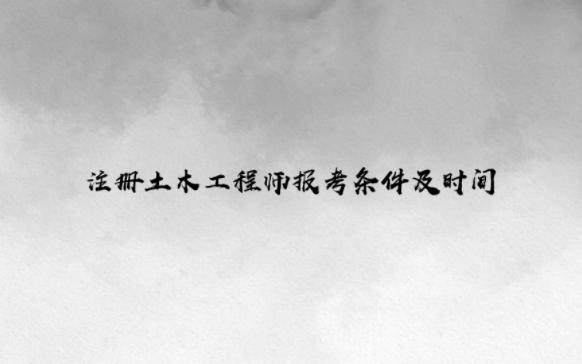 注册土木工程师报考条件及时间